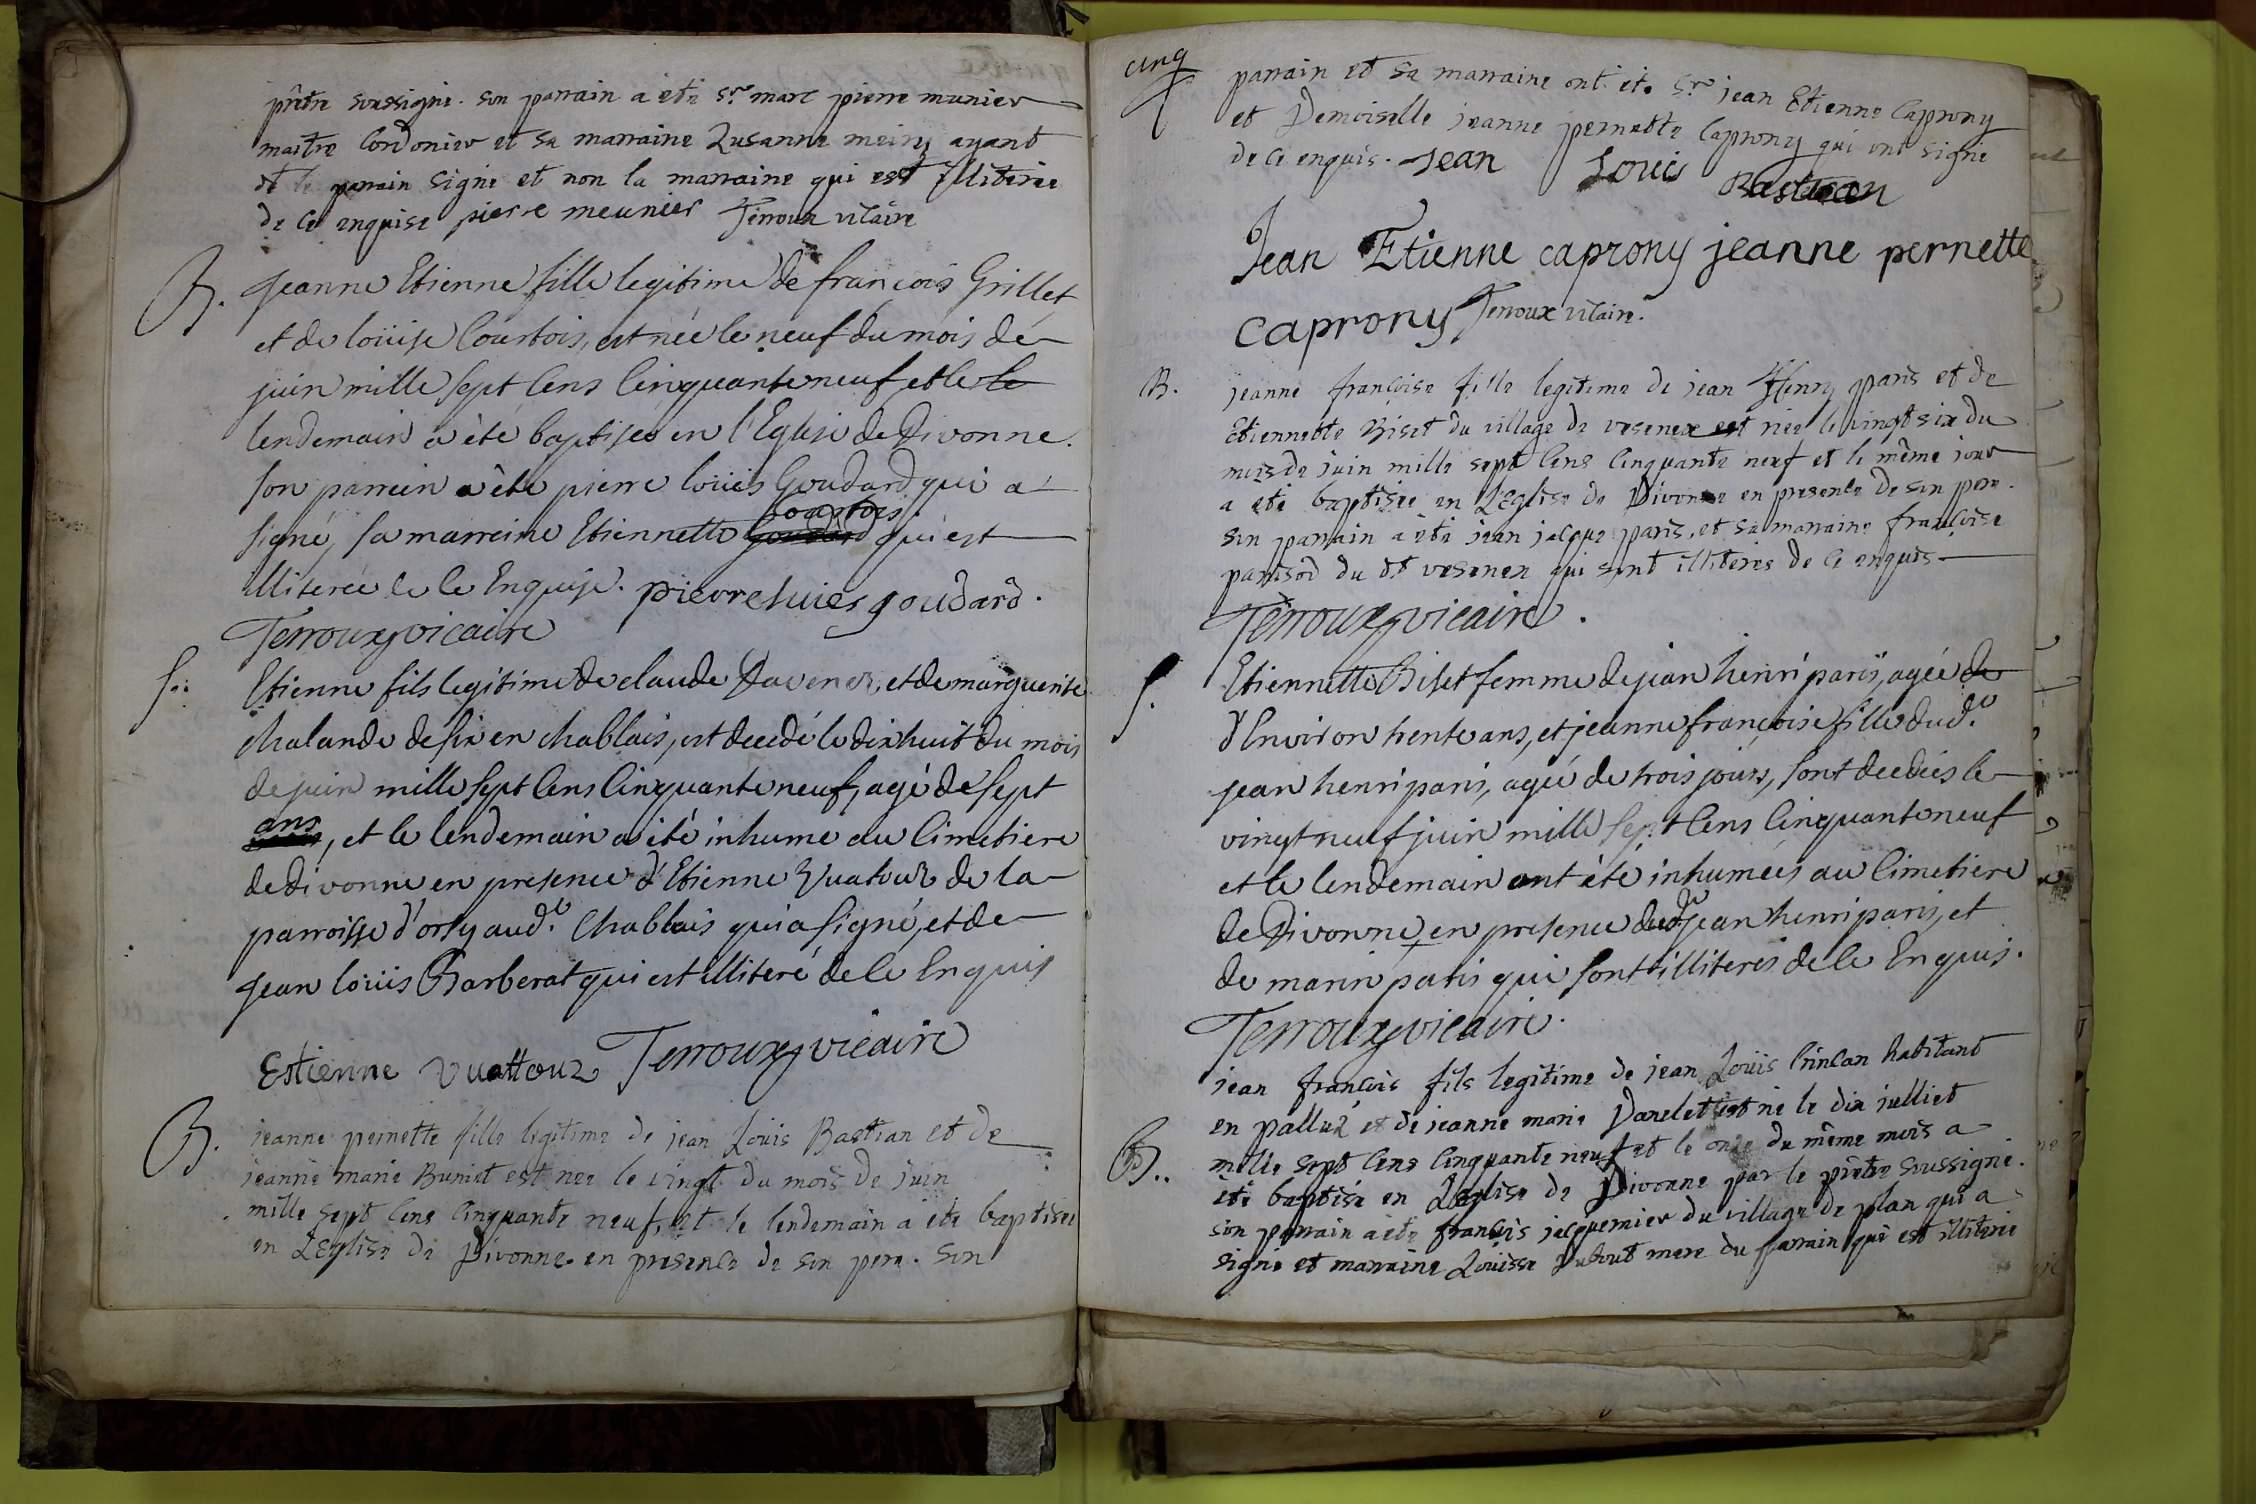 prêtre soussigné. son parrain a été Sr marc pierre munier
maitre Cordonier et sa marraine Susanne meiny ayant
dt le parrain signé et non la marraine qui est illiterée
de ce enquise pierre meunier Terroux vicaire
B. Jeanne Etienne fille legitime de françois Grillet
et de loüise Courtois, est née le neuf du mois de
juin mille sept Cens Cinquante neuf, et le le
lendemain a été baptisée en l'Eglise de Divonne.
son parrein a été pierre loüis Goudard qui a
signé, sa marreine Etiennette Courtois qui est
illiterée de ce Enquise. pierre luies goudard.
Terroux vicaire
S. Etienne fils legitime de claude Davener, et de marguerite
chalande de fix en chablais, est decedé le dix huit du mois
de juin mille sept Cens Cinquante neuf, agé de sept
ans, et le lendemain a été inhumé au Cimetiere
de Divonne en presence d'Etienne Vuatoux de la
parroisse d'orsy aud.t Chablais qui a signé, et de
Jean loüis Barberat qui est illiteré de ce Enquis
Estienne Vuattoux Terroux vicaire
B. jeanne pernette fille legitime de jean Loüis Bastian et de
jeanne marie Buniet est née le vingt du mois de juin
mille sept Cens Cinquante neuf, et le lendemain a été baptisée
en L'Eglise de Divonne en presence de son pere. Son
cinq
parrain et sa marraine ont été Sr jean Etienne Caprony
et Demoiselle jeanne pernette Caprony qui ont signé
de ce enquis. Jean Louis Bastian
Jean Etienne caprony jeanne pernette
caprony Terroux vicaire.
B. jeanne françoise fille legitime de jean Henry paris et de
Etiennette Biset du village de vesenex est née le vingt six du
mois de juin mille sept Cens Cinquante neuf et le même jour
a été baptisée en L'Eglise de Divonne en presence de son pere.
son parrain a été jean jacque paris, et sa marraine françoise
panisod du dt vesenex qui sont illiterés de ce enquis
Terroux vicaire.
S. Etiennette Biset femme de jean henri paris, agée de
d'Environ trente ans, et jeanne françoise fille dud.t
jean henri paris, agée de trois jours, sont decedées le
vingt neuf juin mille sept Cens Cinquante neuf
et le lendemain ont été inhumées au Cimetiere
de Divonne, en presence dudt jean henri paris, et
de marin paris qui sont illiterés de ce Enquis.
Terroux vicaire.
jean françois fils legitime de jean Loüis Crinçan habitant
en palluz et de jeanne marie Darelet est né le dix julliet
B.. mille sept Cens Cinquante neuf et le onze du même mois a
été baptisé en L'Eglise de Divonne par le prêtre soussigné.
son parrain a été françois jacquemier du village de plan qui a
signé et marraine Loüisse Dubout mere du parrain qui est illiterée